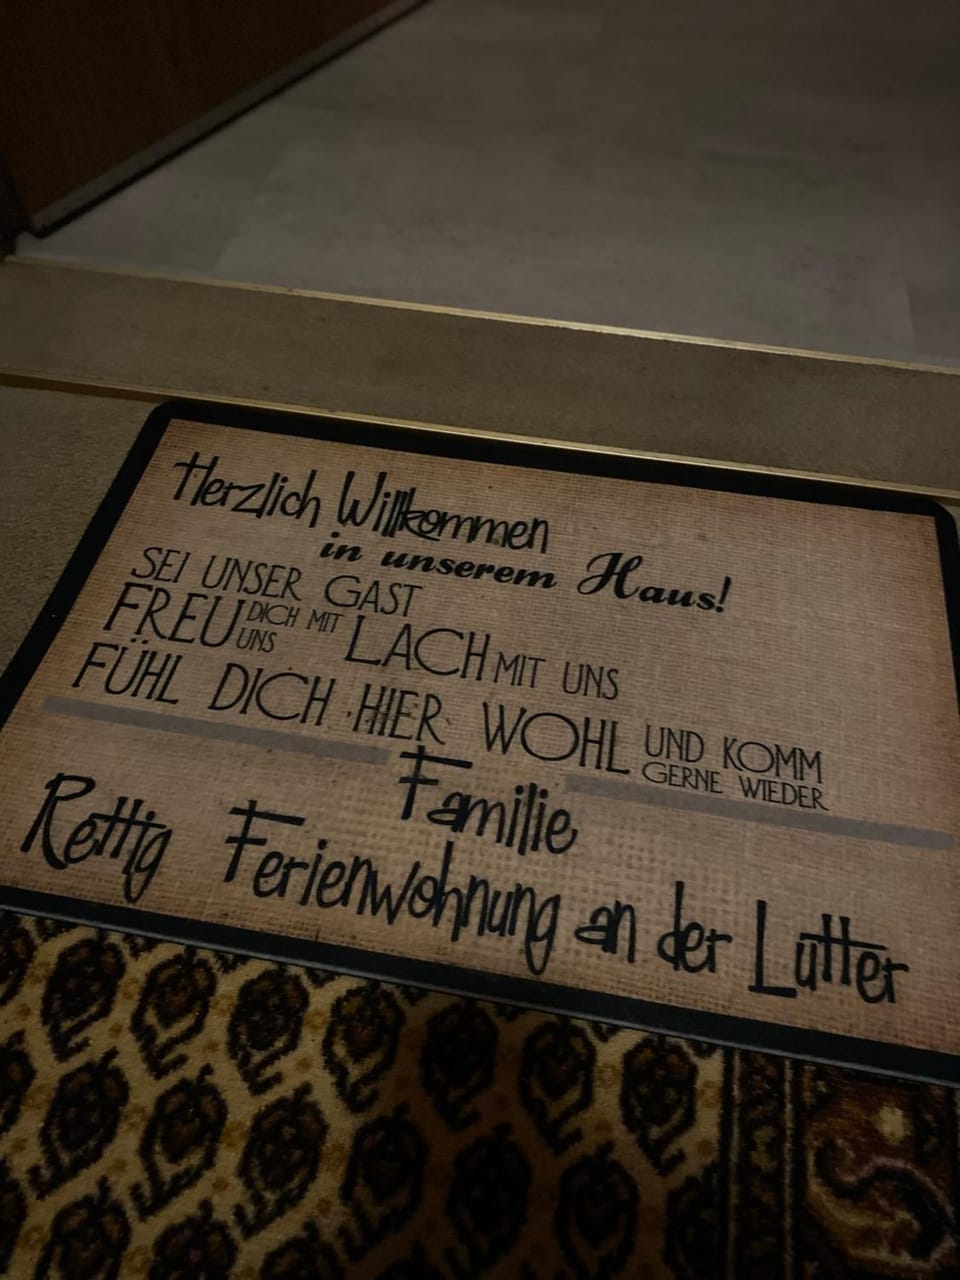 Herzlich Willkommen
in unserem Haus!
SEI UNSER GAST
FREU DICH MIT UNS LACH MIT UNS
FÜHL DICH HIER WOHL UND KOMM GERNE WIEDER
Familie
Rettig Ferienwohnung an der Lutter